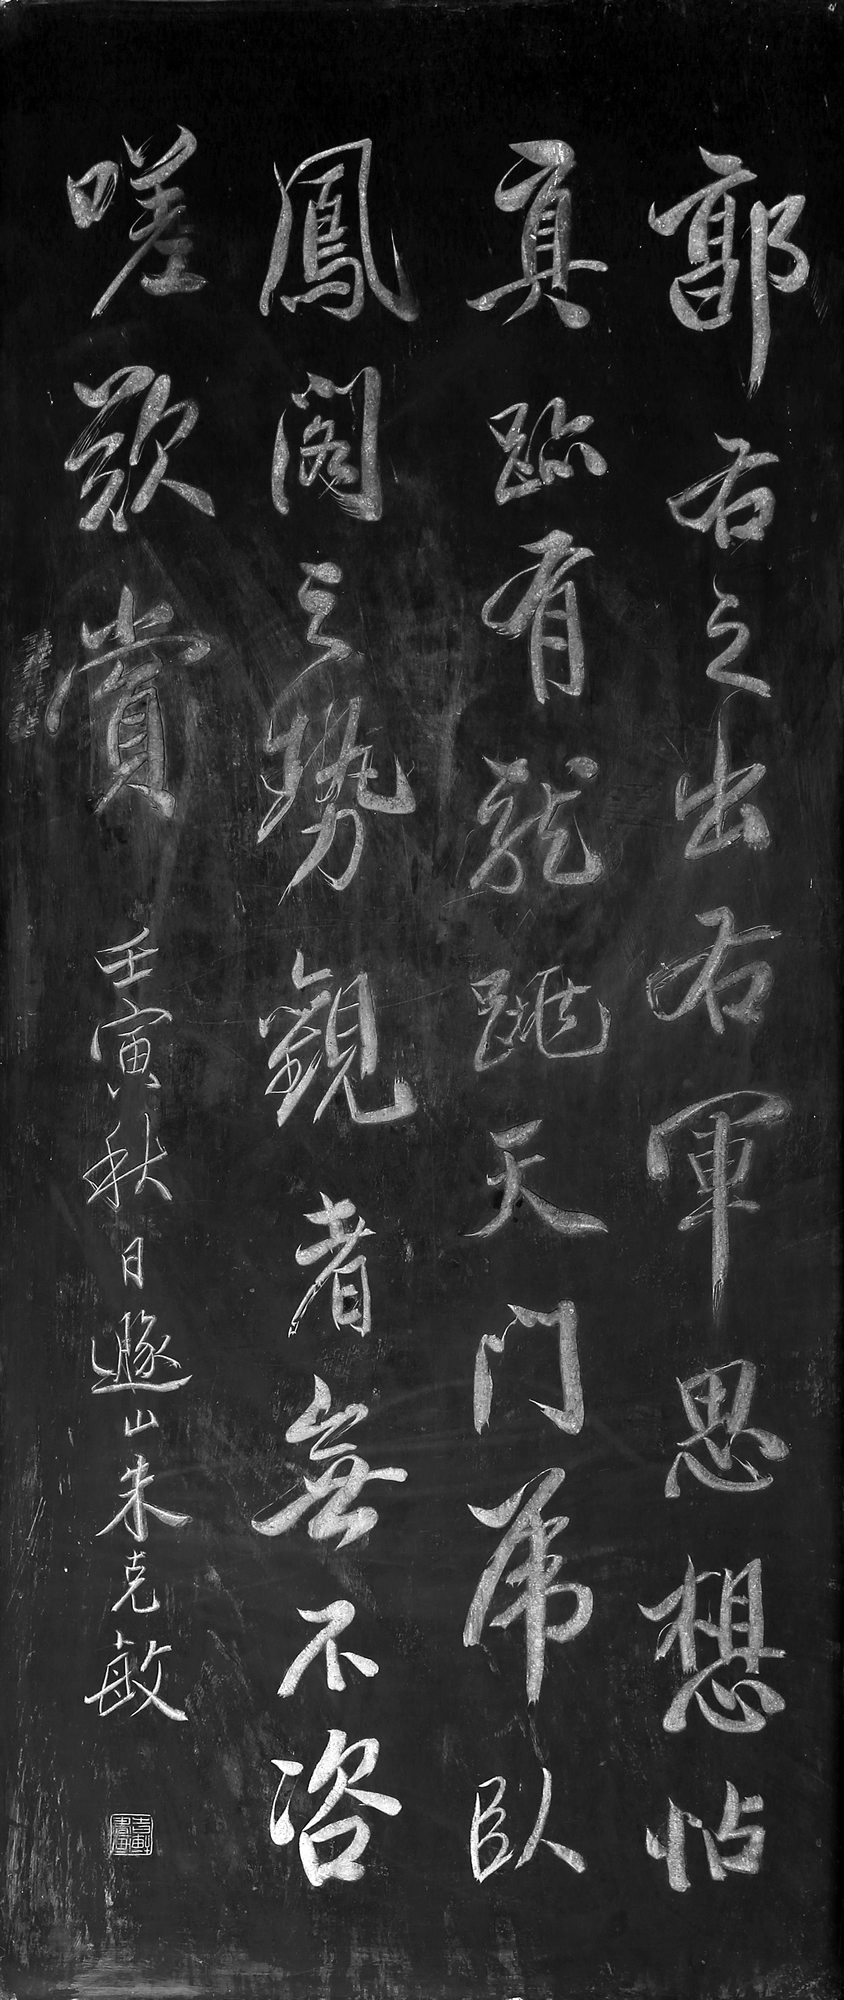 郭右之出右軍思想帖
真跡有龍跳天門虎臥
鳳閣之勢觀者無不咨
嗟歎賞
壬寅秋日遯山朱克敏